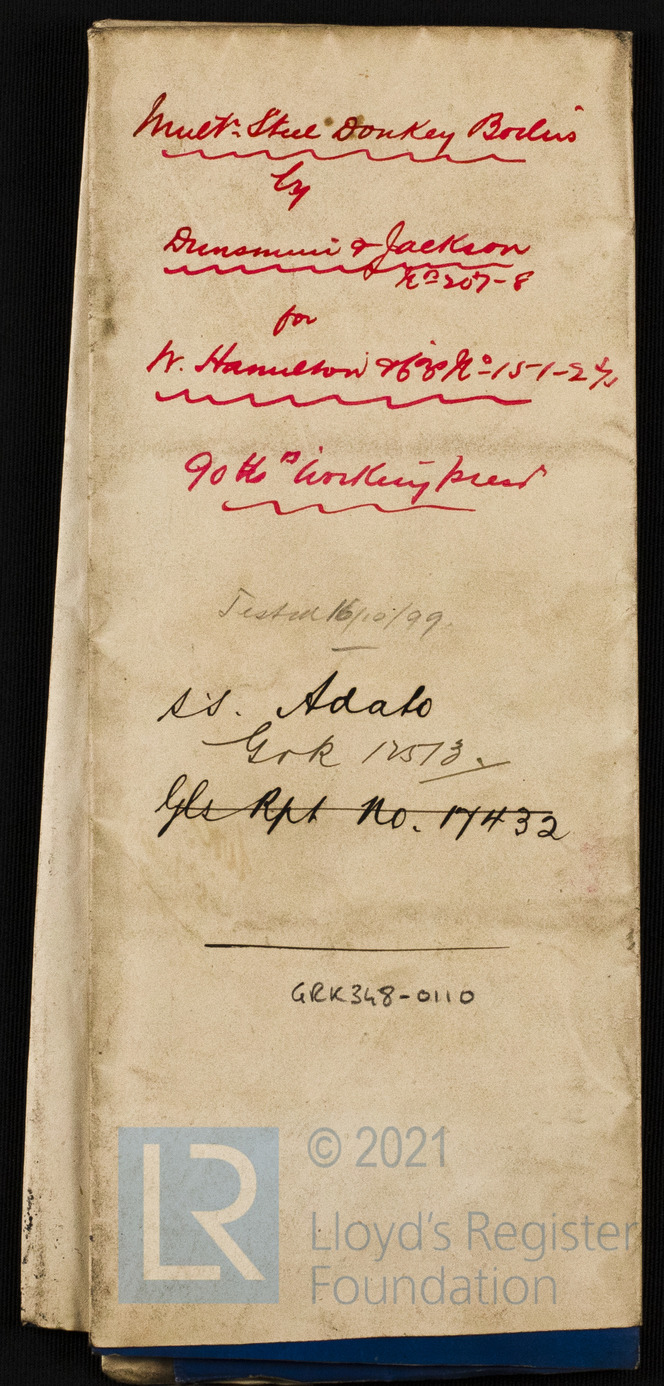 Mult. Steel Donkey Boilers
by
Dunsmuir & Jackson
No 207-8
for
W. Hamilton & Co No 151-2
90 lbs Working press
Tested 16/10/99.
s.s. Adato
Grk 12513.
Gls Rpt No. 17432
GRK348-0110
LR
© 2021
Lloyd's Register
Foundation